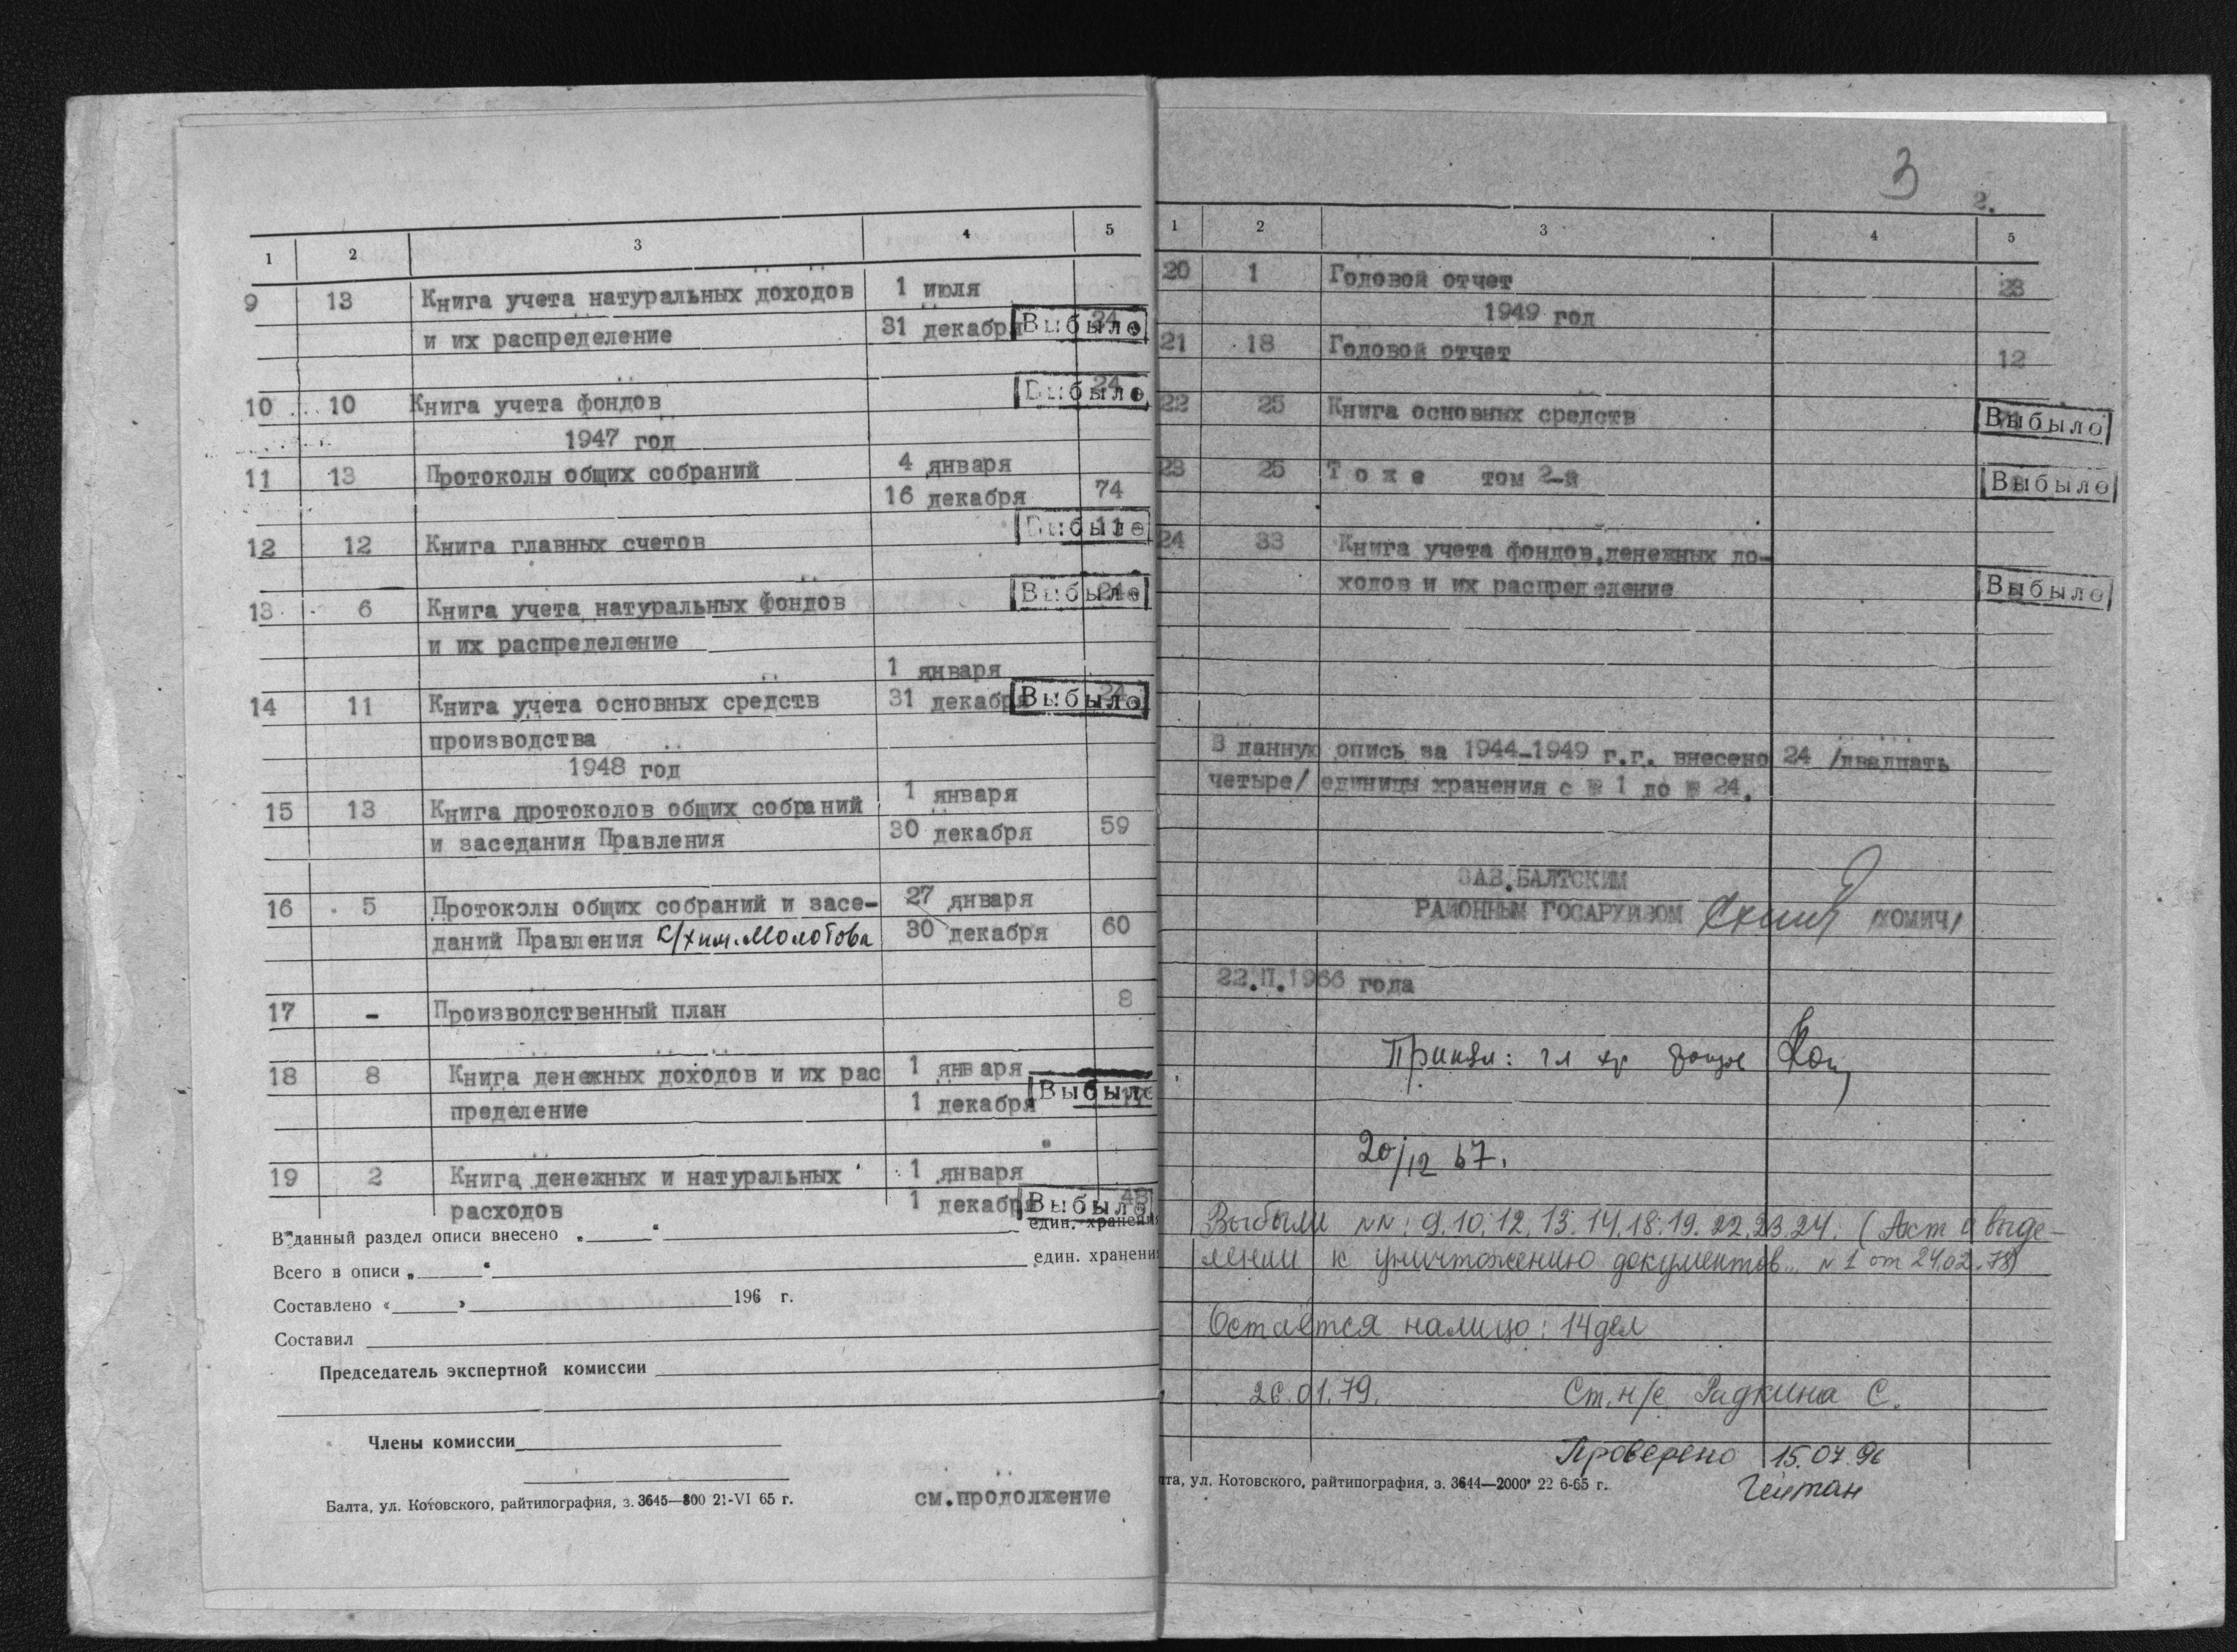 1 2 3 4 5
9 13 Книга учета натуральных доходов 1 июля
и их распределение 31 декабря 24 Выбыло
10 10 Книга учета фондов 24 Выбыло
1947 год
11 13 Протоколы общих собраний 4 января
16 декабря 74
12 12 Книга главных счетов 11 Выбыло
13 6 Книга учета натуральных фондов 24 Выбыло
и их распределение
1 января
14 11 Книга учета основных средств 31 декабря 24 Выбыло
производства
1948 год
15 13 Книга протоколов общих собраний 1 января
и заседания Правления 30 декабря 59
16 5 Протоколы общих собраний и засе- 27 января
даний Правления к/х им. Молотова 30 декабря 60
17 - Производственный план 8
18 8 Книга денежных доходов и их рас 1 января
пределение 1 декабря Выбыло
19 2 Книга денежных и натуральных 1 января
расходов 1 декабря 48 Выбыло
В данный раздел описи внесено „ “ един. хранения
Всего в описи „ “ един. хранения
Составлено « » 196 г.
Составил
Председатель экспертной комиссии
Члены комиссии
Балта, ул. Котовского, райтипография, з. 3645—300 21-VI 65 г.
см.продолжение
3
2.
1 2 3 4 5
20 1 Годовой отчет 23
1949 год
21 18 Годовой отчет 12
22 25 Книга основных средств Выбыло
23 25 Т о ж е том 2-й Выбыло
24 33 Книга учета фондов,денежных до-
ходов и их распределение Выбыло
В данную опись за 1944-1949 г.г. внесено 24 /двадцать
четыре/ единицы хранения с № 1 до № 24.
ЗАВ.БАЛТСКИМ
РАЙОННЫМ ГОСАРХИВОМ /ХОМИЧ/
22.II.1966 года
Принял: гл хр
20/12 67.
Выбыли NN: 9.10.12.13.14.18.19.22.23.24. (Акт о выде-
лении к уничтожению документов... N 1 от 24.02.78)
Остаётся налицо: 14 дел
26.01.79. Ст. н/с Радкина С.
Проверено 15.07.96
лта, ул. Котовского, райтипография, з. 3644—2000 22 6-65 г.